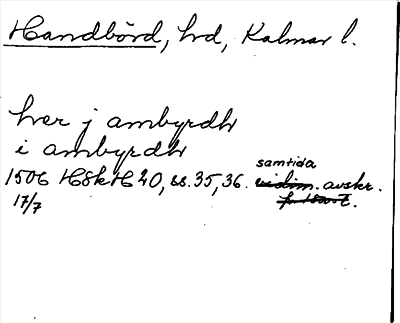 Handbörd, hd, Kalmar l.
hver j ambyrdh
i ambyrdh
samtida
1506 HSkH 20, ss. 35, 36. vidim. avskr.
17/7